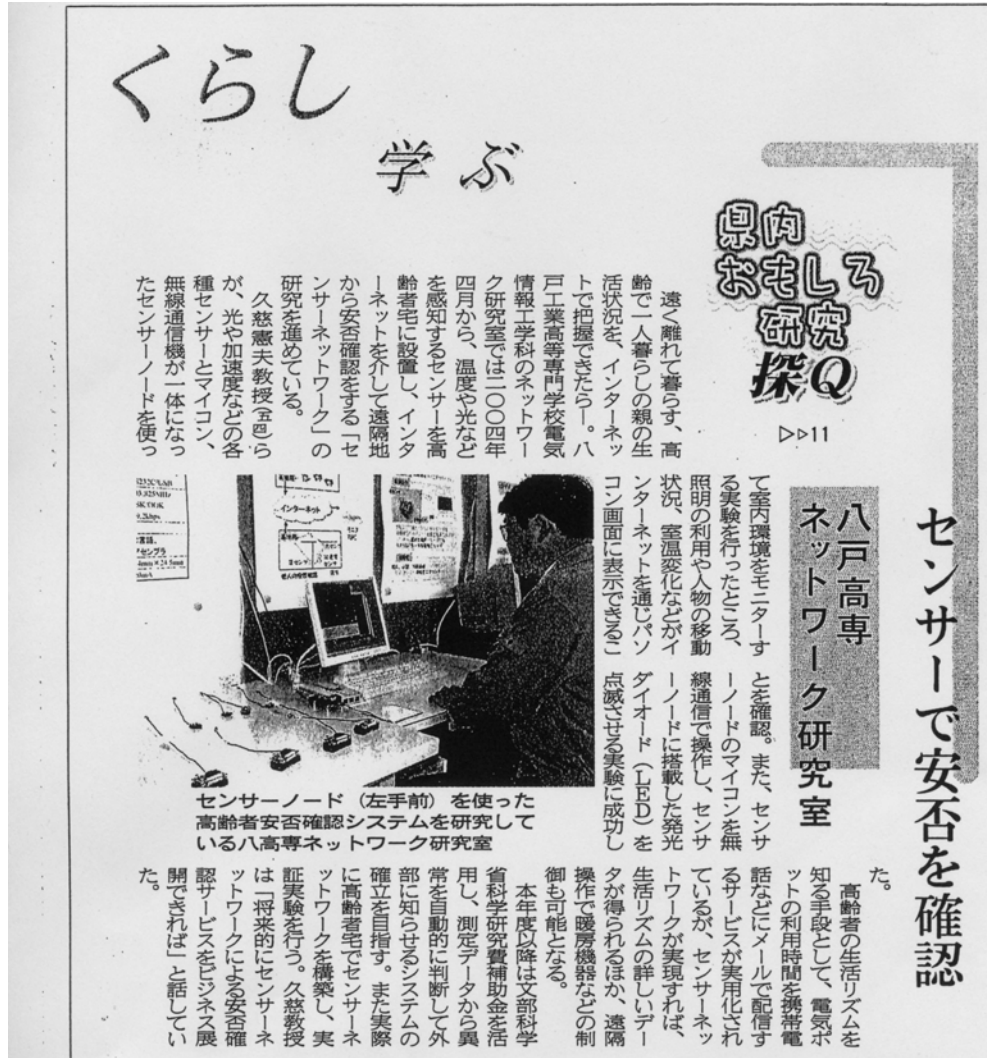 くらし
学ぶ
県内
おもしろ
研究
探Q
▷▷11
センサーで安否を確認
八戸高専
ネットワーク研究室
遠く離れて暮らす、高
齢で一人暮らしの親の生
活状況を、インターネッ
トで把握できたらー。八
戸工業高等専門学校電気
情報工学科のネットワー
ク研究室では二〇〇四年
四月から、温度や光など
を感知するセンサーを高
齢者宅に設置し、インタ
ーネットを介して遠隔地
から安否確認をする「セ
ンサーネットワーク」の
研究を進めている。
久慈憲夫教授(五四)ら
が、光や加速度などの各
種センサーとマイコン、
無線通信機が一体になっ
たセンサーノードを使っ
て室内環境をモニターす
る実験を行ったところ、
照明の利用や人物の移動
状況、室温変化などがイ
ンターネットを通じパソ
コン画面に表示できるこ
とを確認。また、センサ
ーノードのマイコンを無
線通信で操作し、センサ
ーノードに搭載した発光
ダイオード(LED)を
点滅させる実験に成功し
た。
高齢者の生活リズムを
知る手段として、電気ポ
ットの利用時間を携帯電
話などにメールで配信す
るサービスが実用化され
ているが、センサーネッ
トワークが実現すれば、
生活リズムの詳しいデー
タが得られるほか、遠隔
操作で暖房機器などの制
御も可能となる。
本年度以降は文部科学
省科学研究費補助金を活
用し、測定データから異
常を自動的に判断して外
部に知らせるシステムの
確立を目指す。また実際
に高齢者宅でセンサーネ
ットワークを構築し、実
証実験を行う。久慈教授
は「将来的にセンサーネ
ットワークによる安否確
認サービスをビジネス展
開できれば」と話してい
た。
インターネット
センサーノード(左手前)を使った
高齢者安否確認システムを研究して
いる八高専ネットワーク研究室